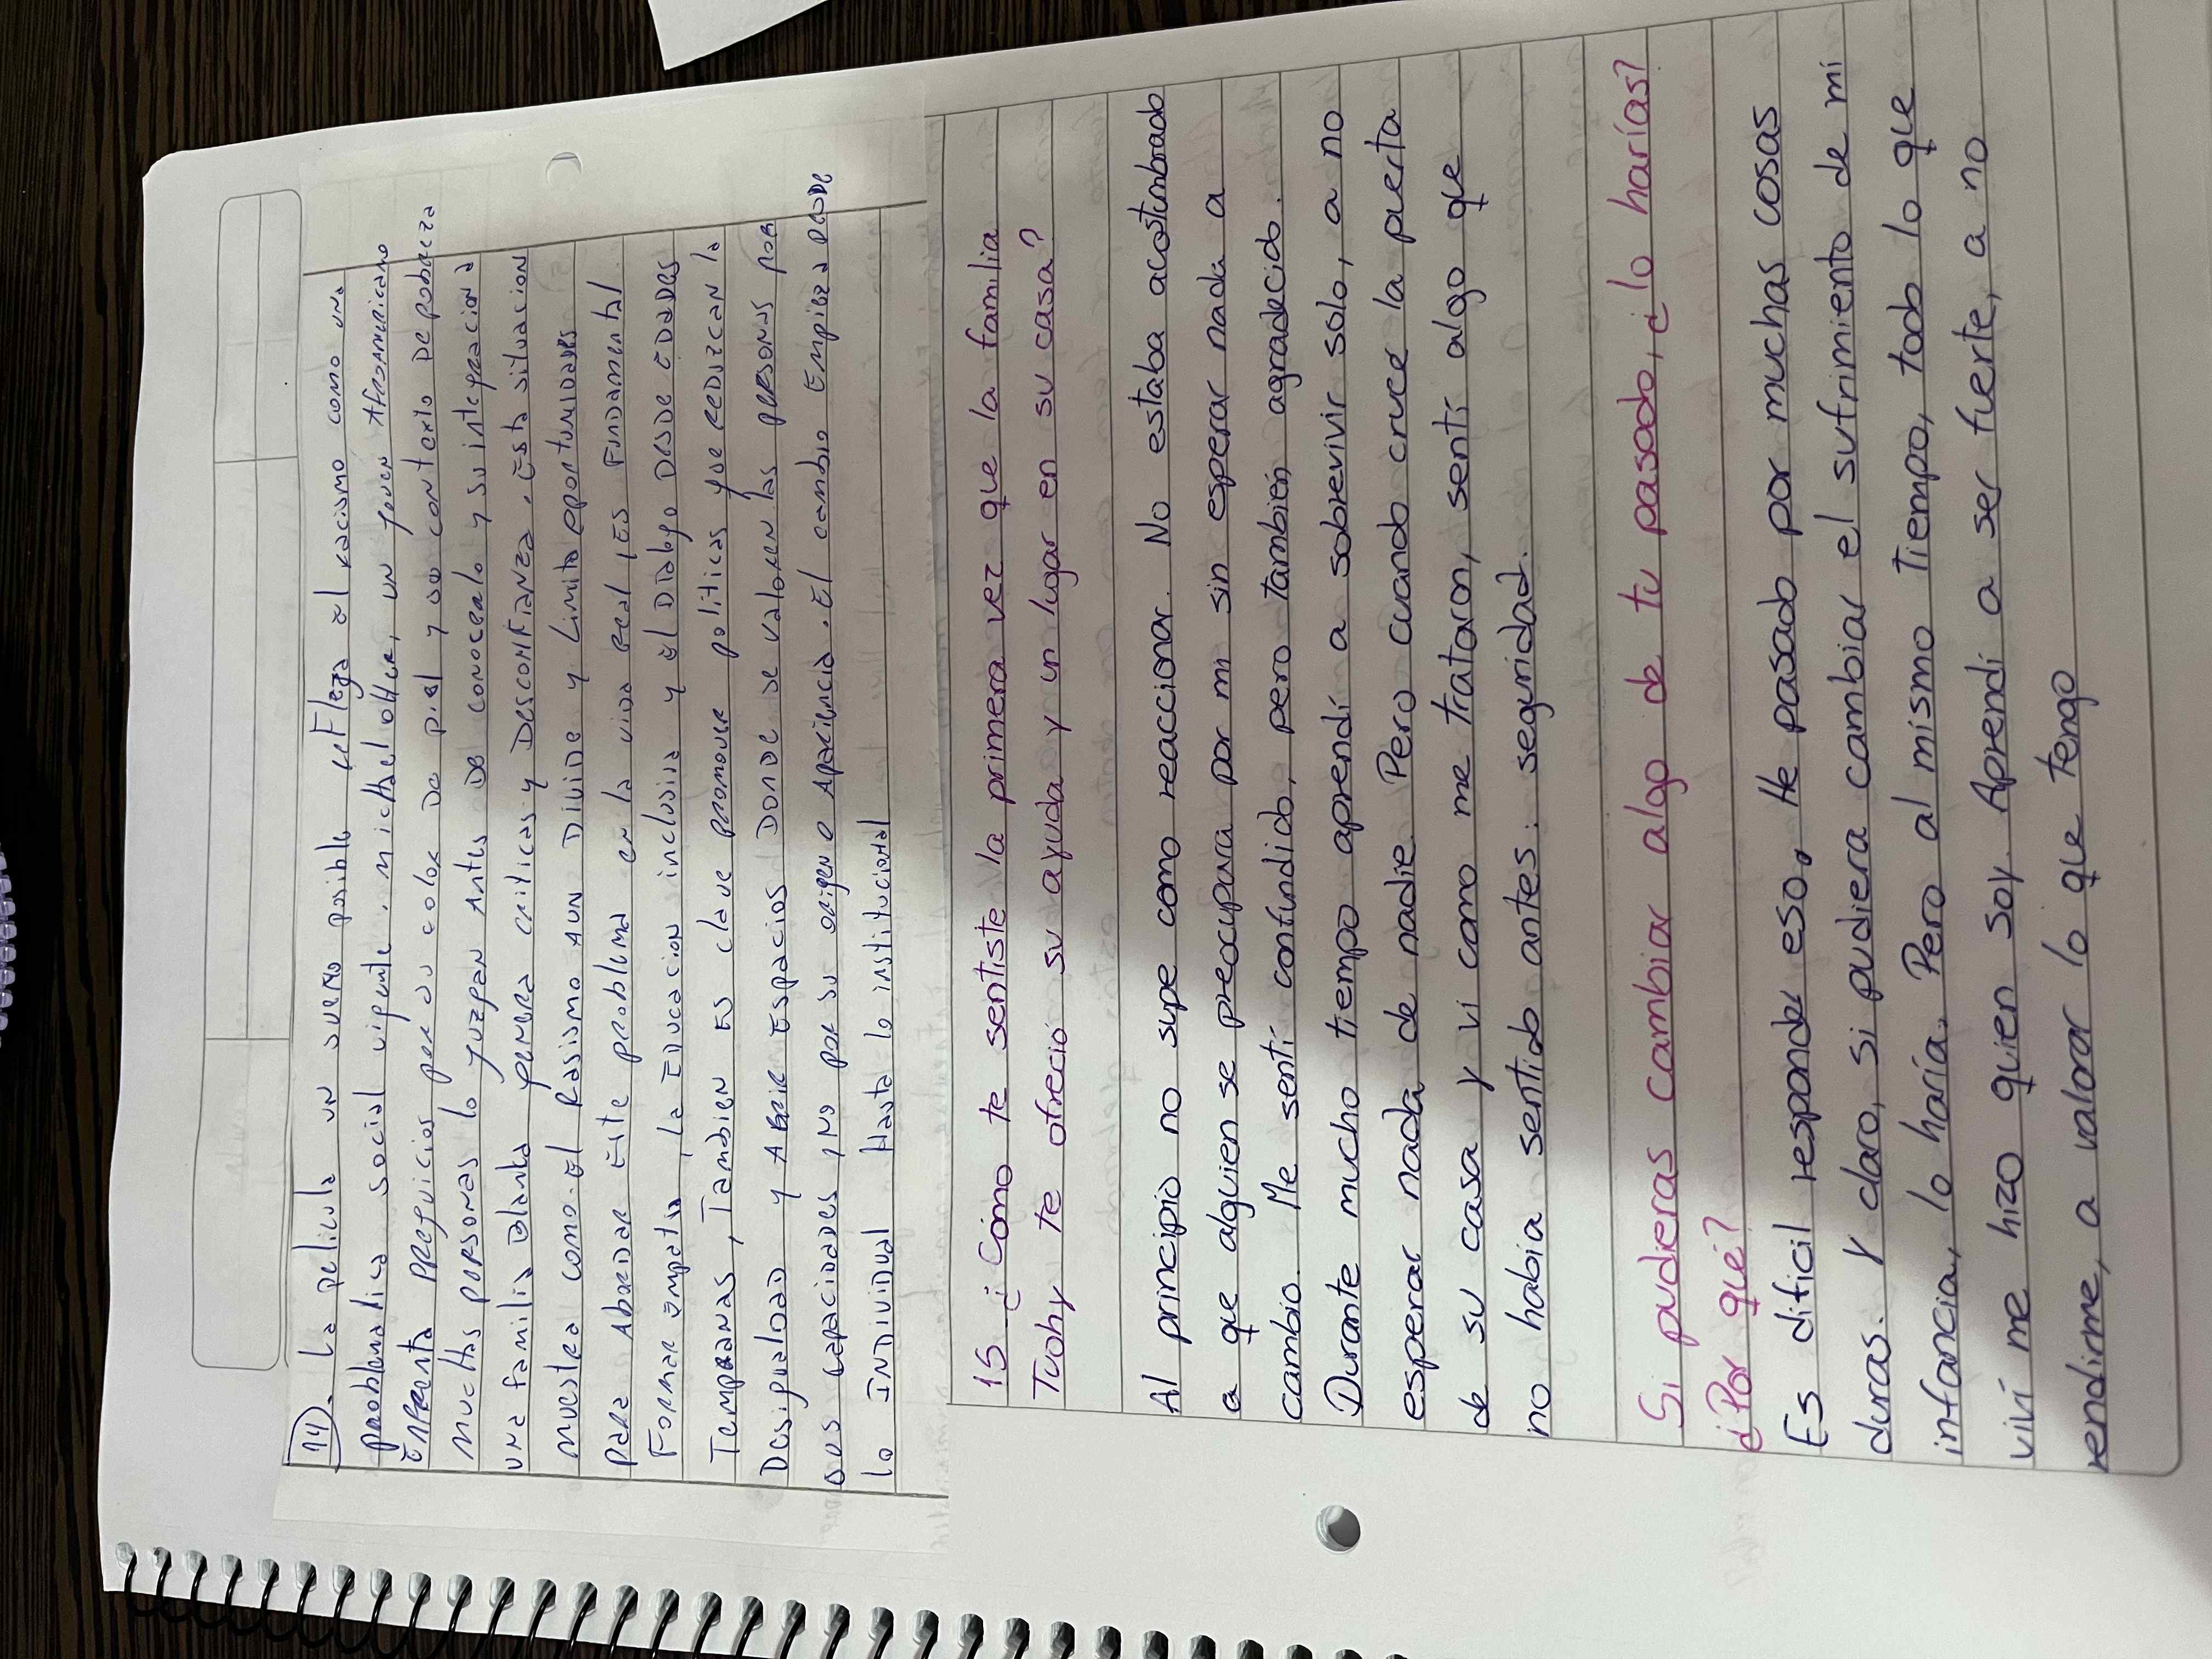 14). La pelicula un sueño posible refleja el racismo como una
problematica social vigente. michael oher, un joven Afroamericano
Enfrenta preguicios por su color de piel y su contexto de pobreza
muchas personas lo juzgan antes de conocerlo y su integracion a
una familia Blanca genera criticas y desconfianza. Esta situacion
muestra como el Rasismo aun Divide y Limita oportunidades
para Abordar Este problema en la vida real, es Fundamental
Formar Empatia, la Educacion inclusiva y el Dialogo Desde edades
Tempranas, Tambien es clave promover politicas que reduzcan la
Desigualdad y Abrir Espacios Donde se valoren las personas por
sus capacidades, no por su origen o Apariencia. El cambio Empieza desde
lo Individual Hasta lo institucional
15 ¿Cómo te sentiste la primera vez que la familia
Tuohy te ofreció su ayuda y un lugar en su casa?
Al principio no supe como reaccionar. No estaba acostumbrado
a que alguien se preocupara por mi sin esperar nada a
cambio. Me sentí confundido, pero también agradecido.
Durante mucho tiempo aprendí a sobrevivir solo, a no
esperar nada de nadie. Pero cuando cruce la puerta
de su casa y vi como me trataron, sentí algo que
no habia sentido antes: seguridad.
Si pudieras cambiar algo de tu pasado, ¿lo harías?
¿Por qué?
Es dificil responder eso. He pasado por muchas cosas
duras. Y claro, si pudiera cambiar el sufrimiento de mi
infancia, lo haría. Pero al mismo tiempo, todo lo que
viví me hizo quien soy. Aprendí a ser fuerte, a no
rendirme, a valorar lo que tengo